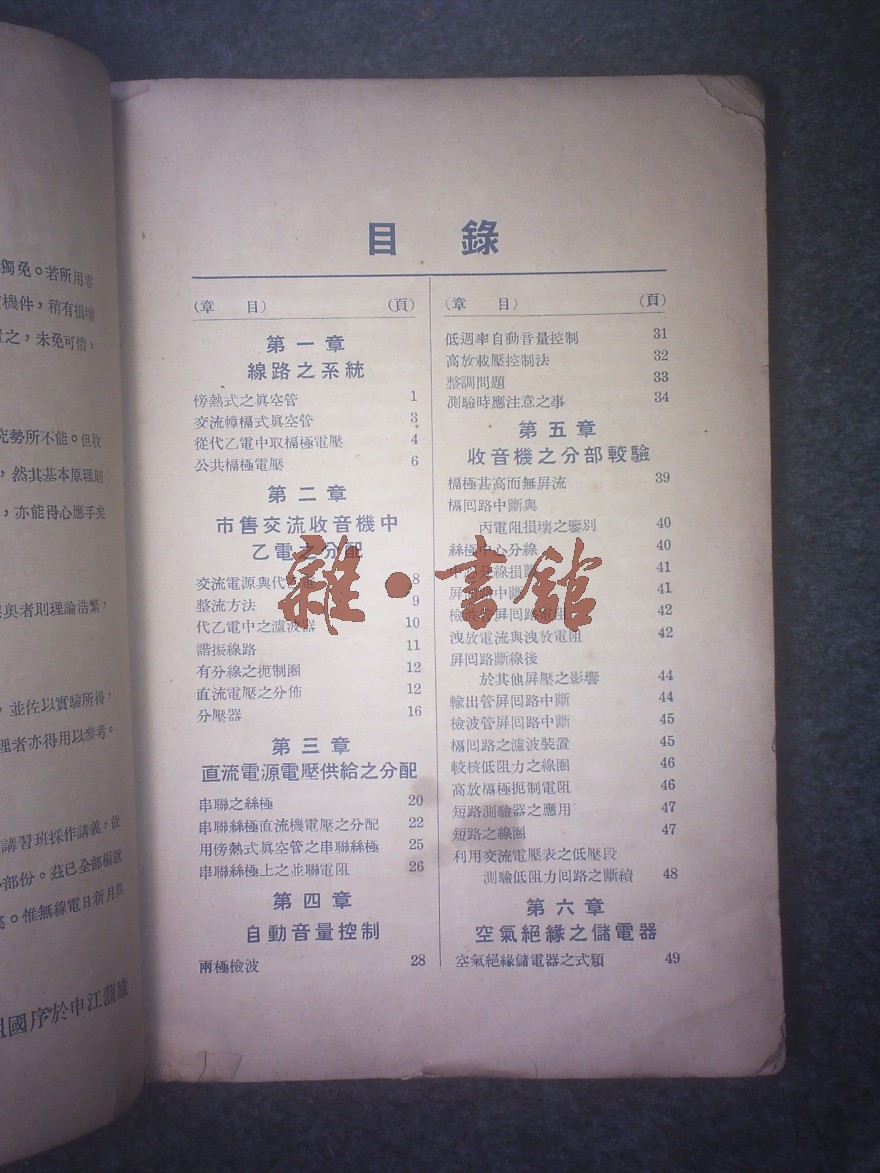 獨免。若所用零
機件，稍有損壞
之，未免可惜，
究勢所不能。但收
，然其基本原理則
，亦能得心應手矣
奧者則理論浩繁，
，並佐以實驗所得，
理者亦得用以參考。
講習班採作講義，故
部份。茲已全部編就
。惟無線電日新月異
國序於申江
目 錄
(章 目) (頁)
第一章
線路之系統
傍熱式之眞空管 1
交流幃柵式眞空管 3
從代乙電中取柵極電壓 4
公共柵極電壓 6
第二章
市售交流收音機中
乙電之分配
交流電源與代 8
整流方法 9
代乙電中之濾波器 10
諧振線路 11
有分線之扼制圈 12
直流電壓之分佈 12
分壓器 16
第三章
直流電源電壓供給之分配
串聯之絲極 20
串聯絲極直流機電壓之分配 22
用傍熱式眞空管之串聯絲極 25
串聯絲極上之並聯電阻 26
第四章
自動音量控制
兩極檢波 28
(章 目) (頁)
低週率自動音量控制 31
高放載壓控制法 32
整調問題 33
測驗時應注意之事 34
第五章
收音機之分部較驗
柵極甚高而無屏流 39
柵回路中斷與
丙電阻損壞之鑒別 40
絲極中心分線 40
中心分線損斷 41
屏回路中斷 41
檢波管屏回路電阻 42
洩放電流與洩放電阻 42
屏回路斷線後
於其他屏壓之影響 44
輸出管屏回路中斷 44
檢波管屏回路中斷 45
柵回路之濾波裝置 45
較核低阻力之線圈 46
高放柵極扼制電阻 46
短路測驗器之應用 47
短路之線圈 47
利用交流電壓表之低壓段
測驗低阻力回路之斷續 48
第六章
空氣絕緣之儲電器
空氣絕緣儲電器之式類 49
雜·書館